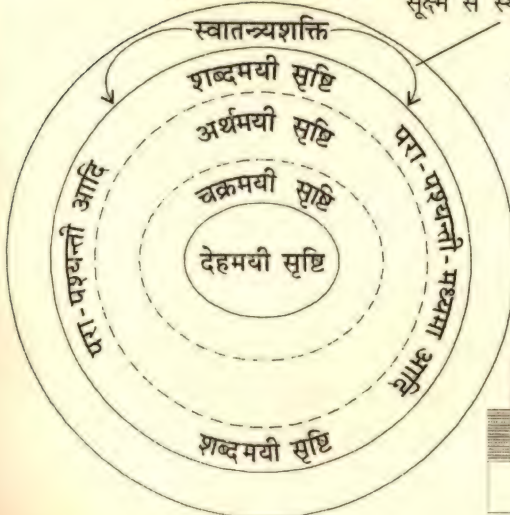 सूक्ष्म से
स्वातन्त्र्यशक्ति
शब्दमयी सृष्टि
अर्थमयी सृष्टि
चक्रमयी सृष्टि
देहमयी सृष्टि
परा-पश्यन्ती आदि
परा-पश्यन्ती-मध्यमा आदि
शब्दमयी सृष्टि